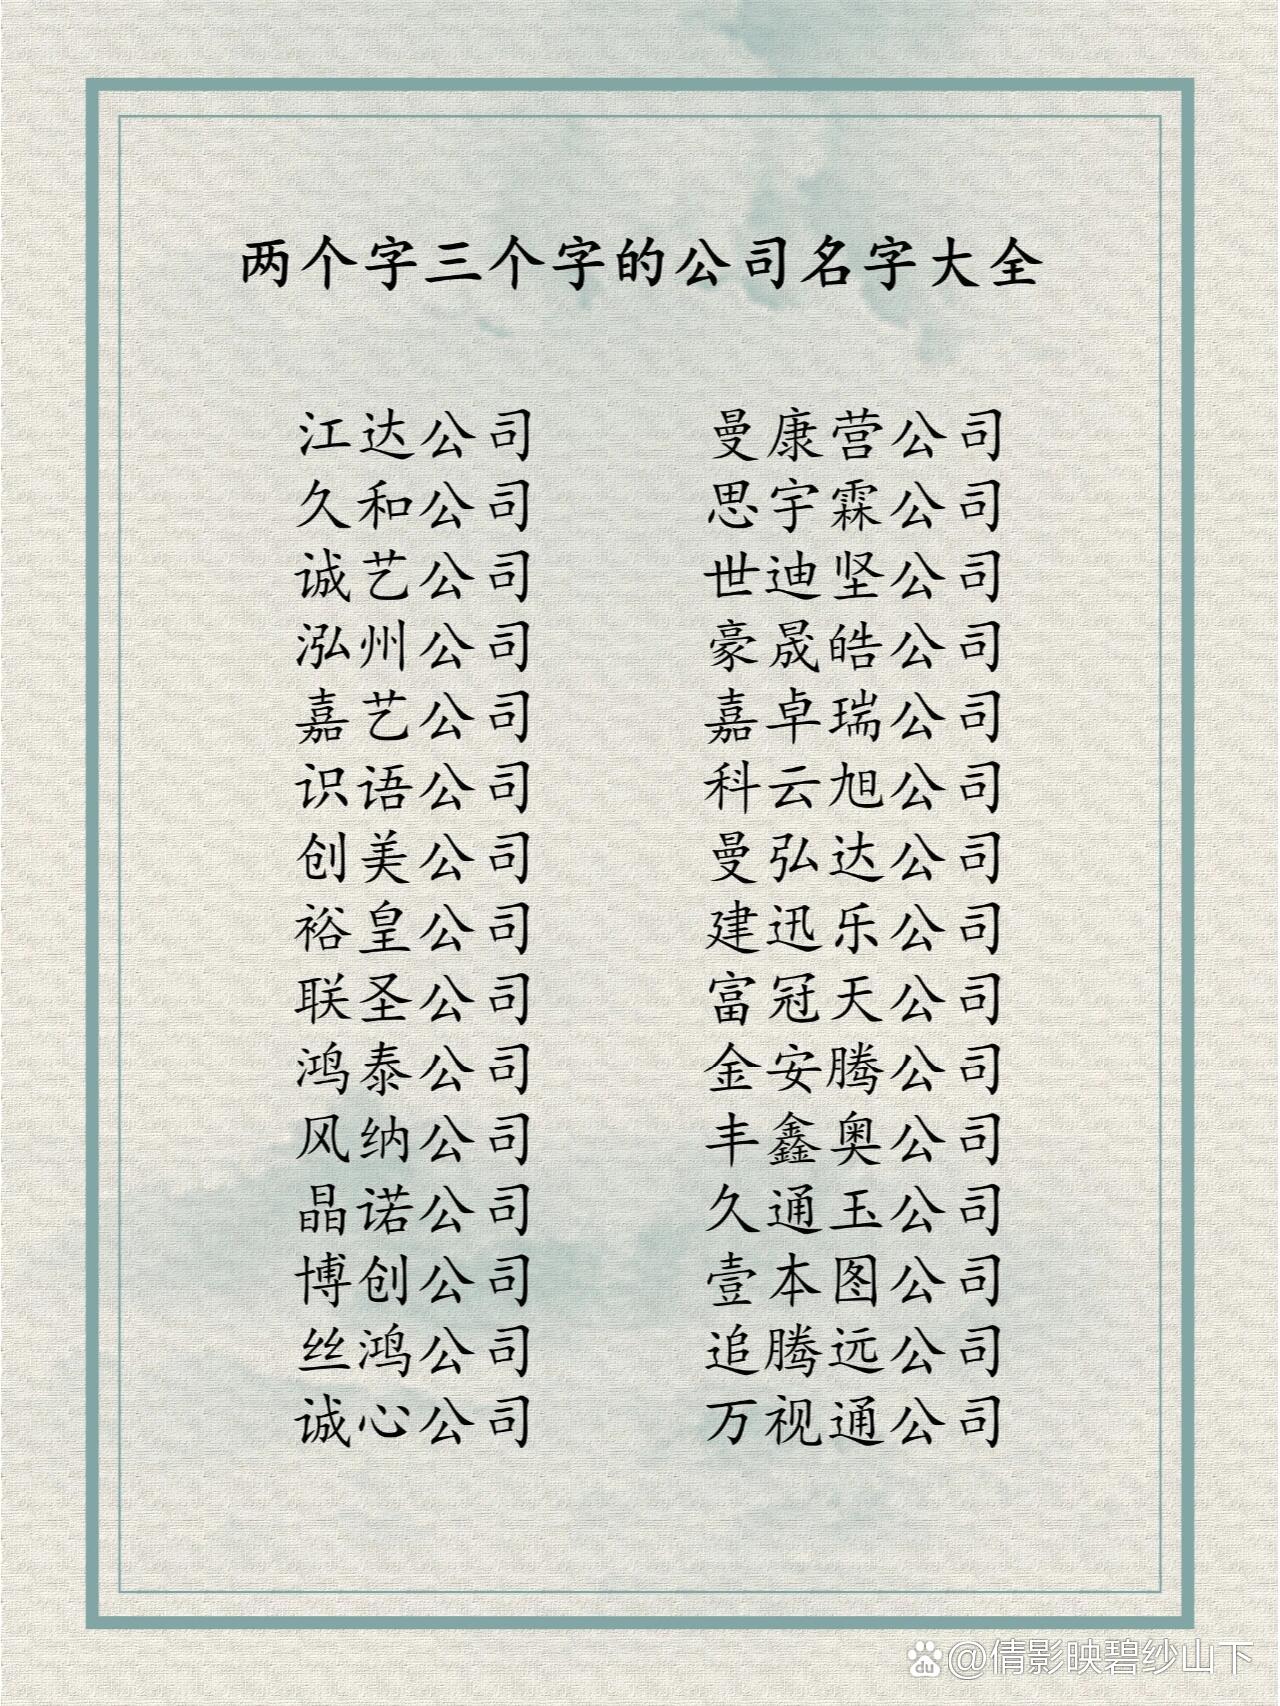 两个字三个字的公司名字大全
江达公司 曼康营公司
久和公司 思宇霖公司
诚艺公司 世迪坚公司
泓州公司 豪晟皓公司
嘉艺公司 嘉卓瑞公司
识语公司 科云旭公司
创美公司 曼弘达公司
裕皇公司 建迅乐公司
联圣公司 富冠天公司
鸿泰公司 金安腾公司
风纳公司 丰鑫奥公司
晶诺公司 久通玉公司
博创公司 壹本图公司
丝鸿公司 追腾远公司
诚心公司 万视通公司
du @倩影映碧纱山下